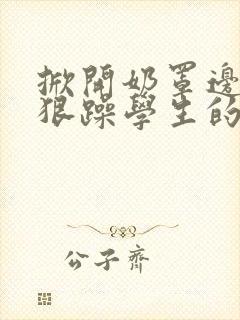 掀開奶罩邊
狠躁學生的
公子齊